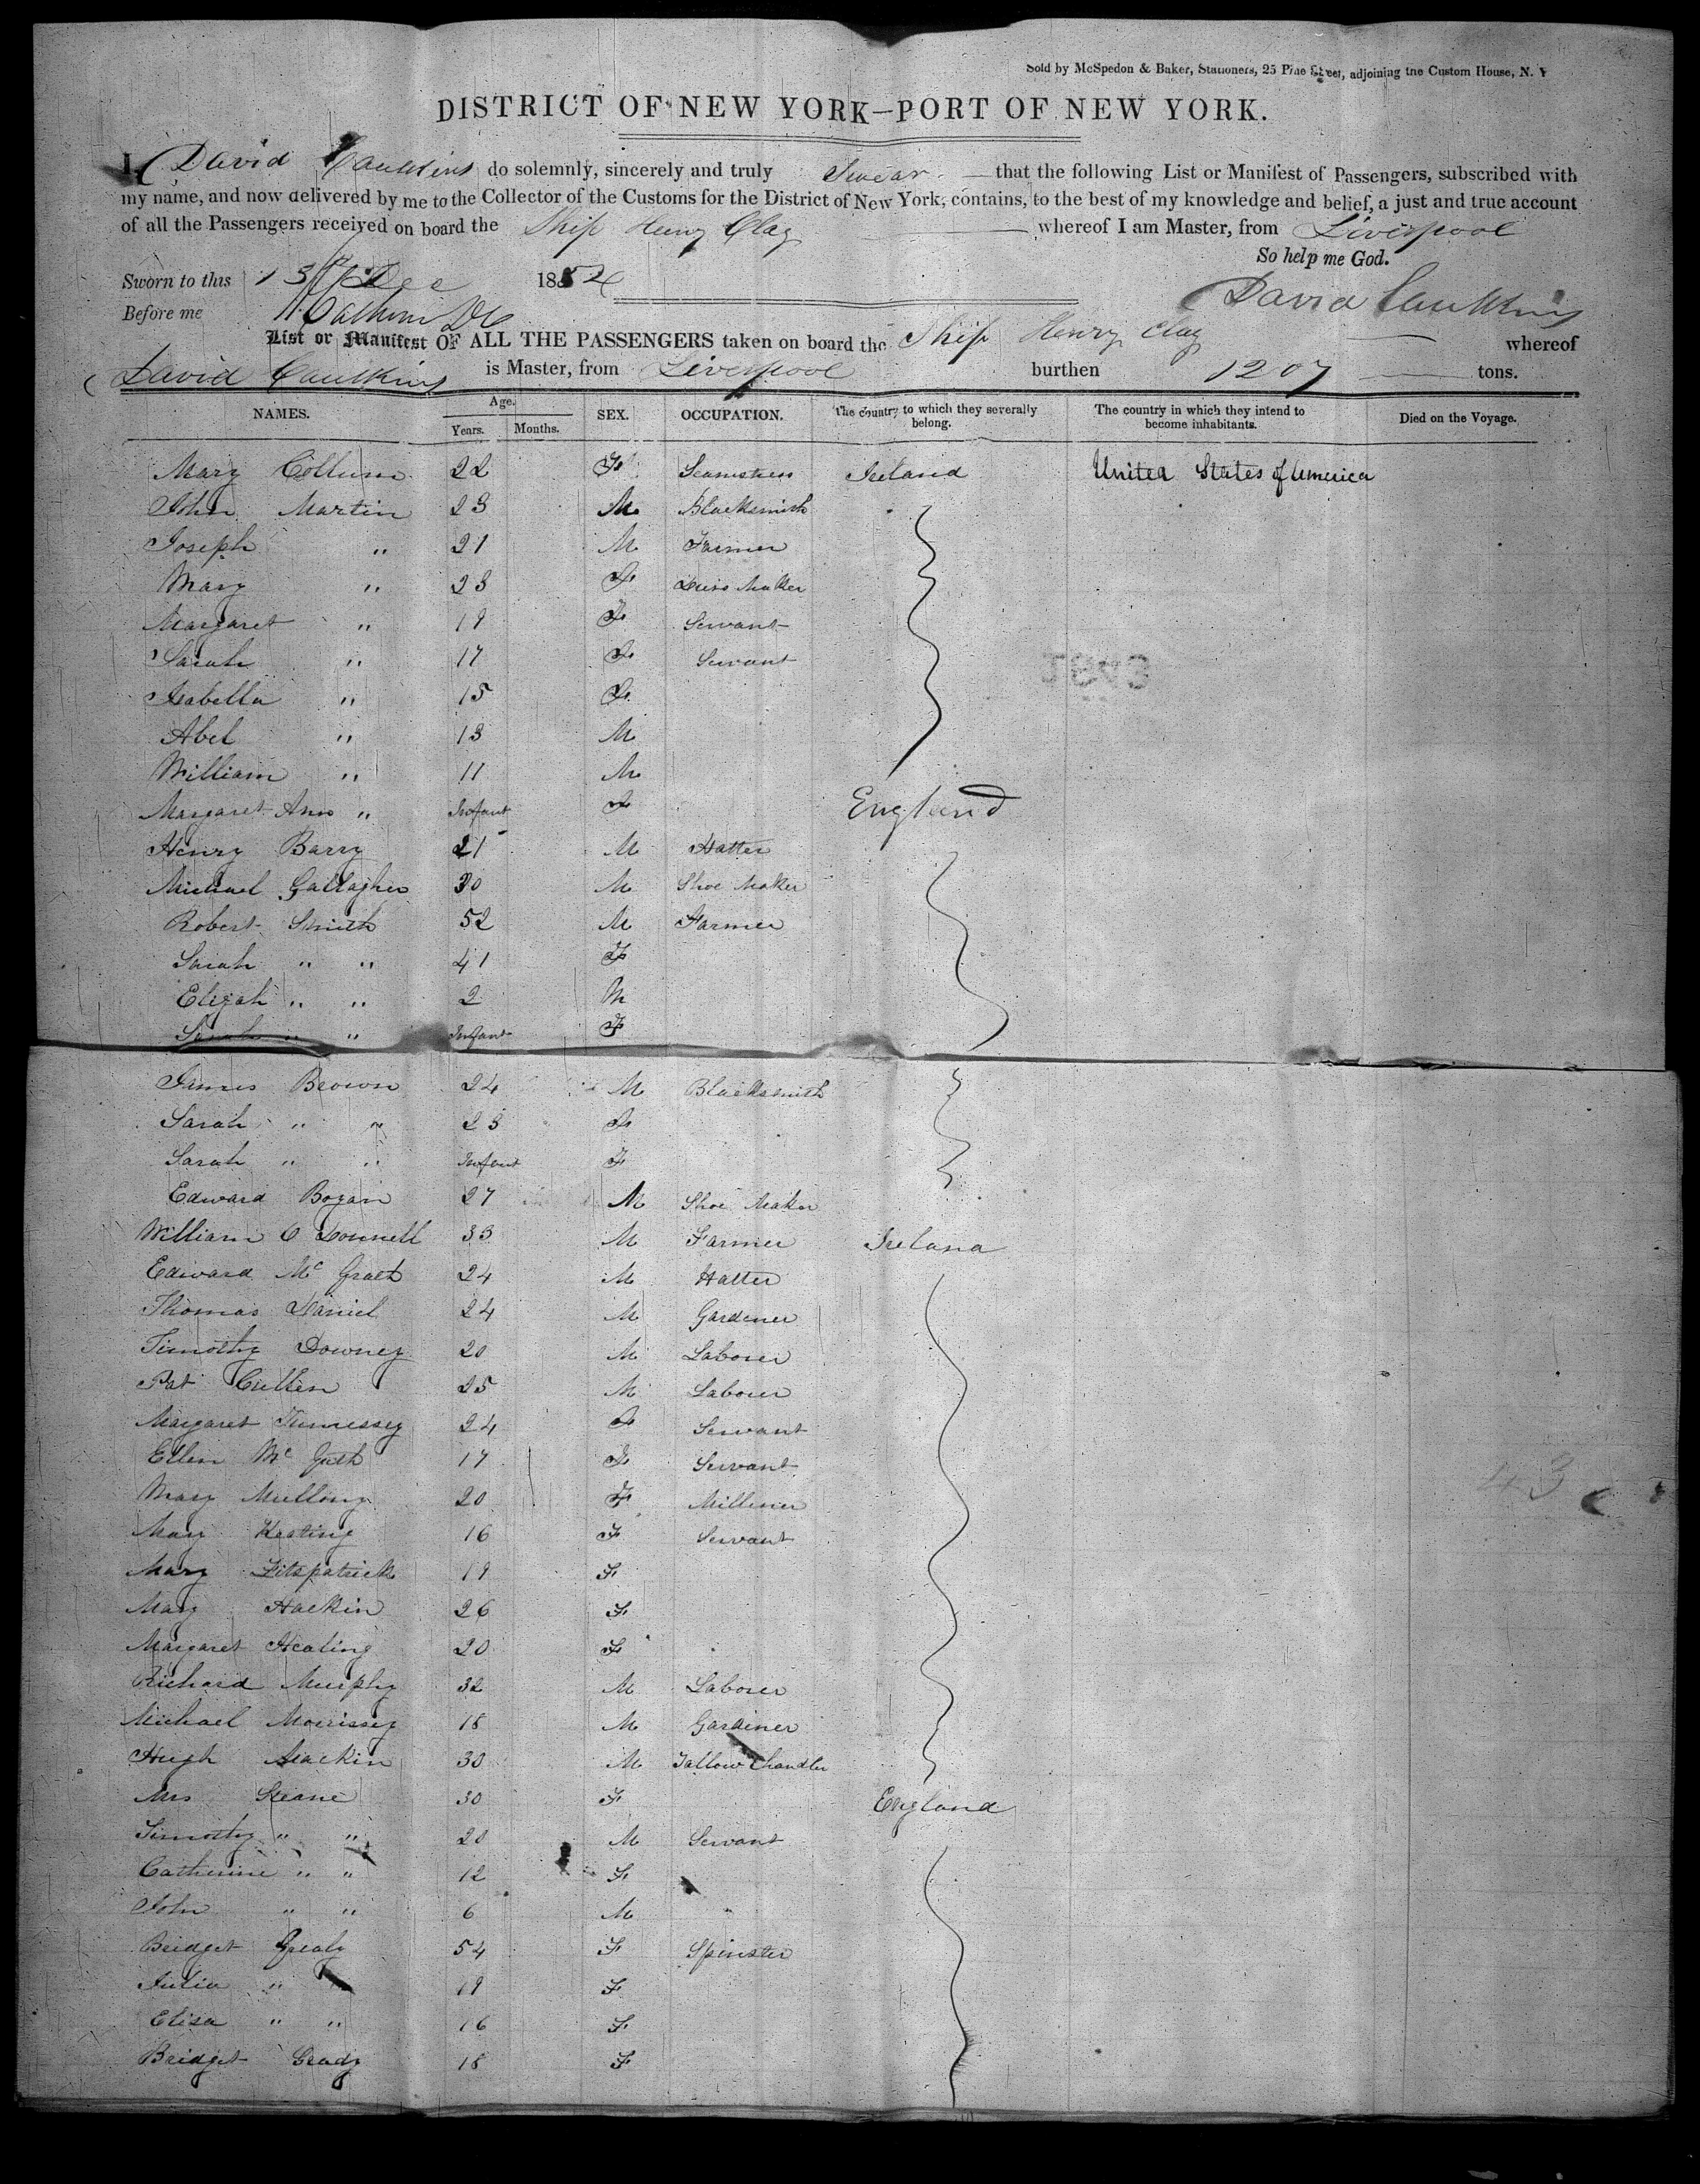 Sold by McSpedon & Baker, Stationers, 25 Pine Street, adjoining the Custom House, N. Y
DISTRICT OF NEW YORK—PORT OF NEW YORK.
I, David Caulkins do solemnly, sincerely and truly Swear — that the following List or Manifest of Passengers, subscribed with
my name, and now delivered by me to the Collector of the Customs for the District of New York, contains, to the best of my knowledge and belief, a just and true account
of all the Passengers received on board the Ship Henry Clay — whereof I am Master, from Liverpool
So help me God.
Sworn to this 13th Dec 1852
David Caulkins
Before me
List or Manifest OF ALL THE PASSENGERS taken on board the Ship Henry Clay — whereof
David Caulkins is Master, from Liverpool burthen 1207 — tons.
NAMES. Age. Years. Months. SEX. OCCUPATION. The country to which they severally belong. The country in which they intend to become inhabitants. Died on the Voyage.
Mary Collum 22 F Seamstress Ireland United States of America
John Martin 23 M Blacksmith
Joseph " 21 M Farmer
Mary " 23 F Dress Maker
Margaret " 19 F Servant
Sarah " 17 F Servant
Isabella " 15 F
Abel " 13 M
William " 11 M
Margaret Ann " Infant F England
Henry Barry 21 M Hatter
Michael Gallagher 30 M Shoe Maker
Robert Smith 52 M Farmer
Sarah " " 41 F
Elijah " " 2 M
Sarah " " Infant F
James Brown 24 M Blacksmith
Sarah " " 23 F
Sarah " " Infant F
Edward Bogan 27 M Shoe Maker
William O Donnell 33 M Farmer Ireland
Edward Mc Grath 24 M Hatter
Thomas Daniel 24 M Gardener
Timothy Downey 20 M Laborer
Pat Cullen 25 M Laborer
Margaret 24 F Servant
Ellen Mc 17 F Servant
Mary 20 F Milliner
Mary Keating 16 F Servant
Mary Fitzpatrick 19 F
Mary Hackin 26 F
Margaret Healing 20 F
Richard Murphy 32 M Laborer
Michael Morrissey 18 M Gardiner
Hugh Mackin 30 M Tallow Chandler
Mrs Keane 30 F England
Timothy " " 20 M Servant
Catherine " " 12 F
John " " 6 M
Bridget Grealy 54 F Spinster
Julia " 19 F
Elisa " " 16 F
Bridget Grady 18 F